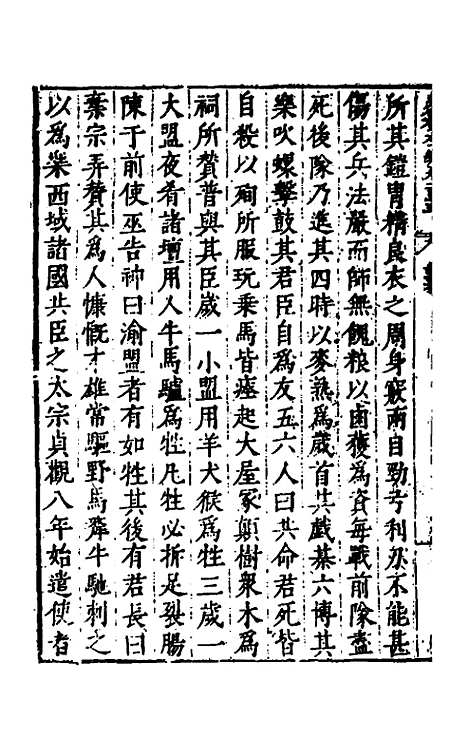 所其鎧胄精良衣之周身竅兩目勁弓利刃不能甚
傷其兵法嚴而師無餽糧以鹵獲為資每戰前隊盡
死後隊乃進其四時以麥熟為歲首其戲棊六博其
樂吹螺擊鼓其君臣自為友五六人曰共命君死皆
自殺以殉所服玩乗馬皆瘞起大屋冢顛樹衆木為
祠所贊普與其臣歲一小盟用羊犬猴為牲三歲一
大盟夜肴諸壇用人牛馬驢為牲凡牲必折足裂腸
陳于前使巫告神曰渝盟者有如牲其後有君長曰
棄宗弄贊其為人慷慨才雄常驅野馬犛牛馳刺之
以為樂西域諸國共臣之太宗貞觀八年始遣使者